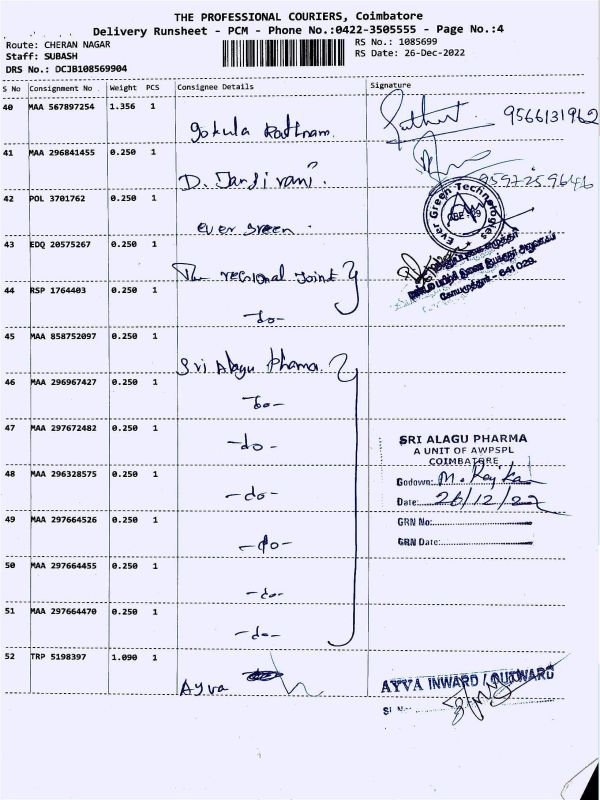 THE PROFESSIONAL COURIERS, Coimbatore
Delivery Runsheet - PCM - Phone No.:0422-3505555 - Page No.:4
Route: CHERAN NAGAR
RS No.: 1085699
Staff: SUBASH
RS Date: 26-Dec-2022
DRS No.: DCJB108569904
S No Consignment No Weight PCS Consignee Details Signature
40 MAA 567897254 1.356 1 Gokula Rathnam. 9566131962
41 MAA 296841455 0.250 1 9597259646
42 POL 3701762 0.250 1 Ever Green. Ever Green Technologies CBE
43 EDQ 20575267 0.250 1 The regional Joint
கோயமுத்தூர் - 641 029.
44 RSP 1764403 0.250 1 -do-
45 MAA 858752097 0.250 1 Sri Alagu Pharma.
46 MAA 296967427 0.250 1 -do-
47 MAA 297672482 0.250 1 -do-
SRI ALAGU PHARMA
A UNIT OF AWPSPL
COIMBATORE
48 MAA 296328575 0.250 1 -do-
Godown:
Date: 26/12/22
49 MAA 297664526 0.250 1 -do-
GRN No:
GRN Date:
50 MAA 297664455 0.250 1 -do-
51 MAA 297664470 0.250 1 -do-
52 TRP 5198397 1.090 1 Ayva
AYVA INWARD / OUTWARD